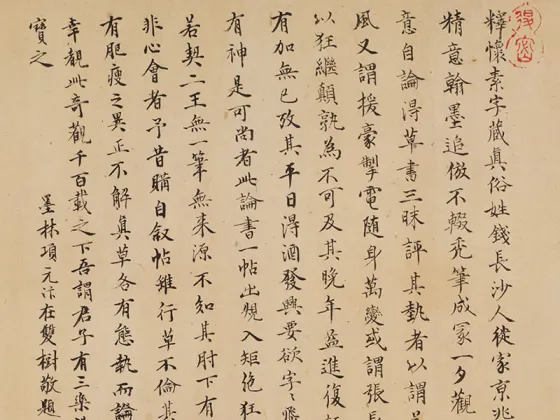 釋懷素字藏真俗姓錢長沙人徙家京兆
精意翰墨追倣不輟禿筆成冢一夕觀
意自論得草書三昧評其埶者以謂
風又謂援豪掣電隨身萬變或謂張長
以狂繼顛孰為不可及其晚年益進復
有加無已攷其平日得酒發興要欲字〻
有神是可尚者此論書一帖出規入矩絶狂
若契二王無一筆無来源不知其肘下有
非心會者予昔購自叙帖雖行草不倫其
有肥瘦之異正不解真草各有態埶而論
幸觀此奇觀千百載之下吾謂君子有三樂
寳之
墨林項元汴在雙樹敬題